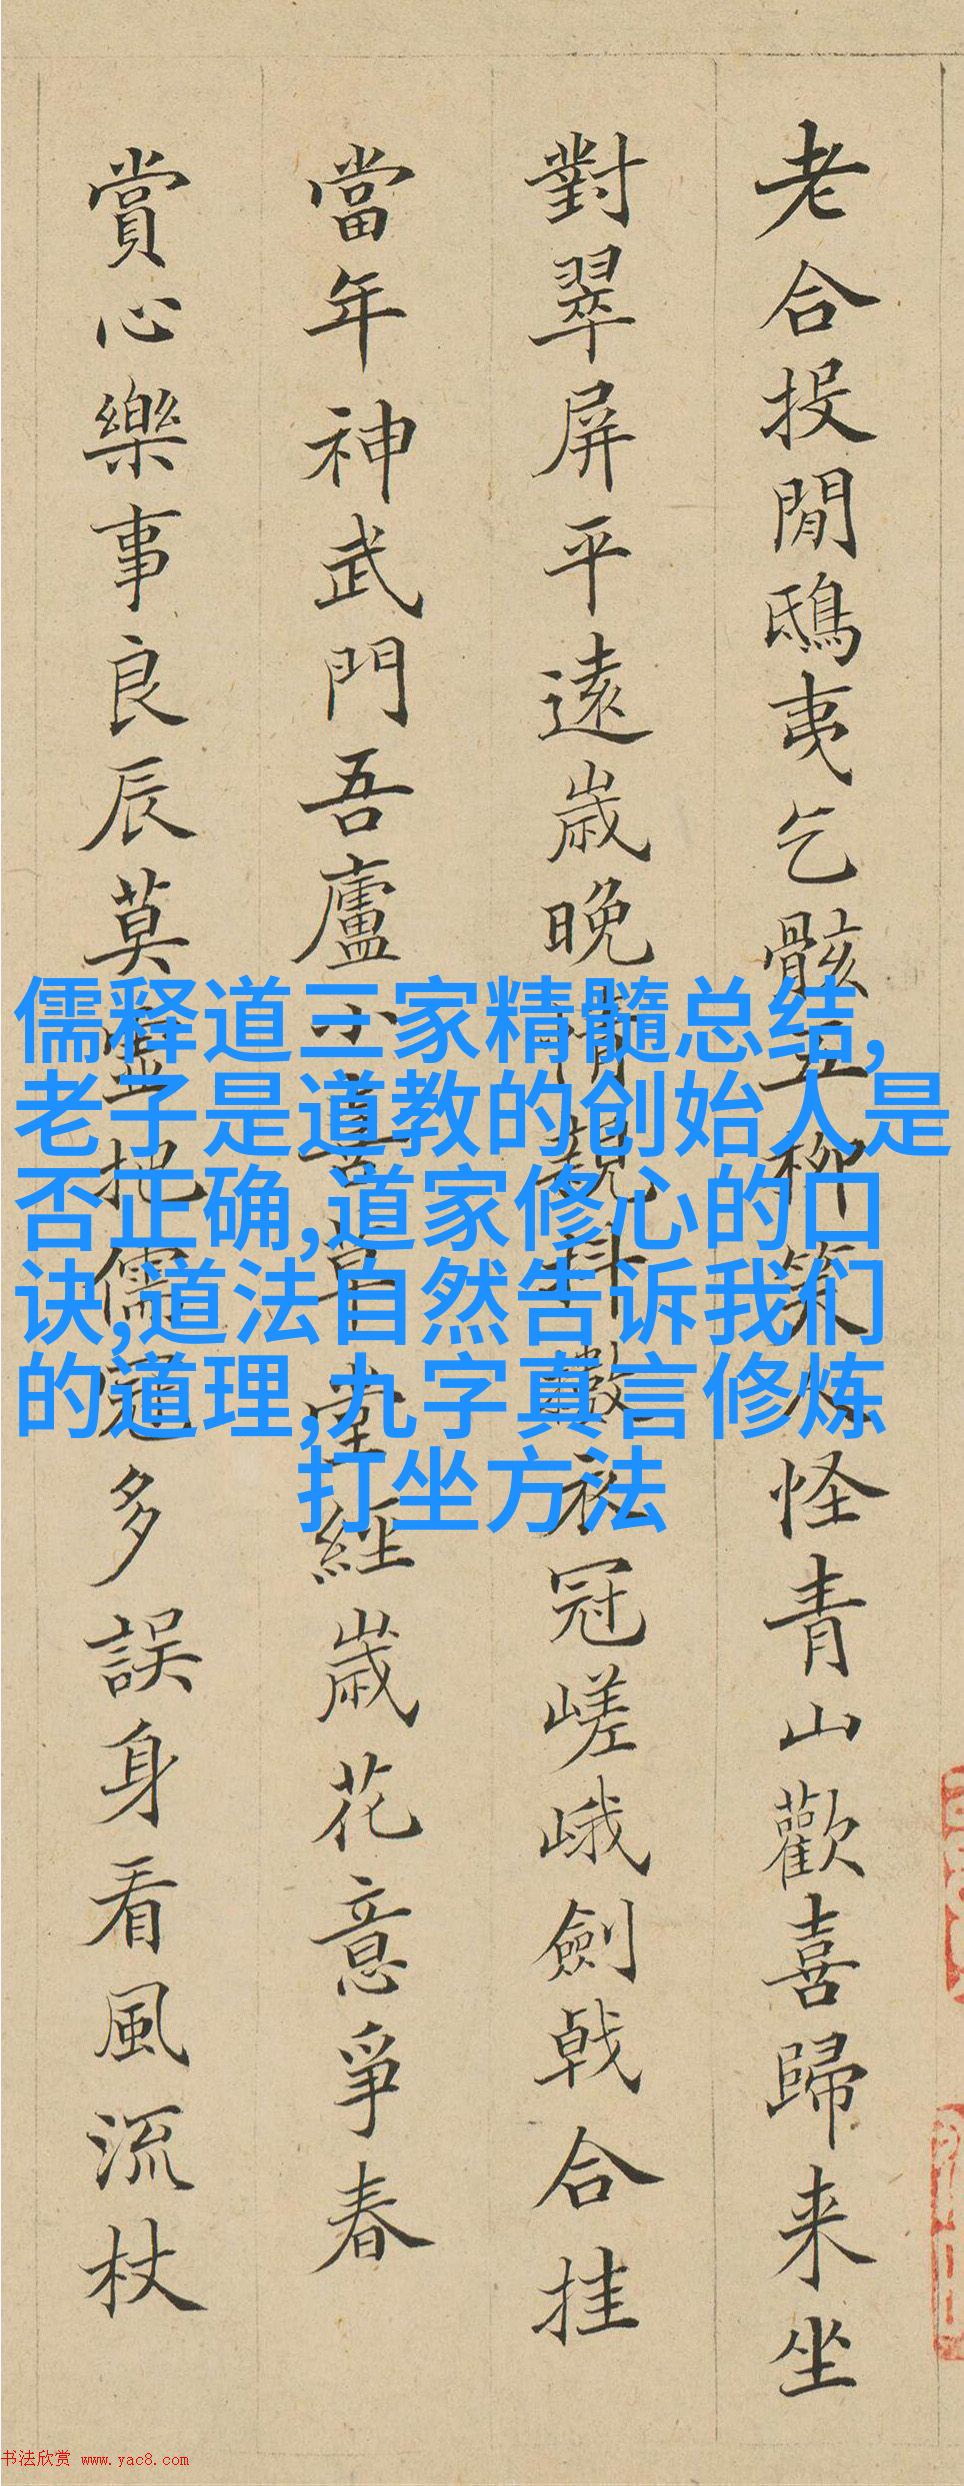 老合投閒鴟夷乞骸五柳策怪青山歡喜歸来坐
對翠屏平遠歲晚情親抖擻衣冠嵯峨劍戟合挂
當年神武門吾廬小喜草堂經歲花意爭春
賞心樂事良辰莫把儒冠多誤身看風流杖
儒释道三家精髓总结,
老子是道教的创始人是
否正确,道家修心的口
诀,道法自然告诉我们
的道理,九字真言修炼
打坐方法
书法欣赏 www.yac8.com